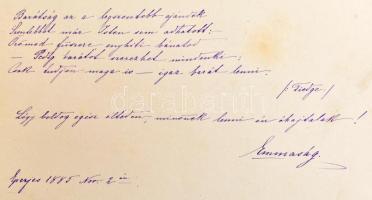 Barátság az a legszentebb ajándék
Szentebbet már Isten nem adhatott:
Örömed fűszere enyhíti bánatod
— Pedig barátot szerezhet mindenki;
Csak tudjon maga is — igaz barát lenni.
/: Tiedge /
Légy boldog egész életeden, minőnek lenni én óhajtalak!
Emmaság.
Eperjes 1885 Nov. 2 án